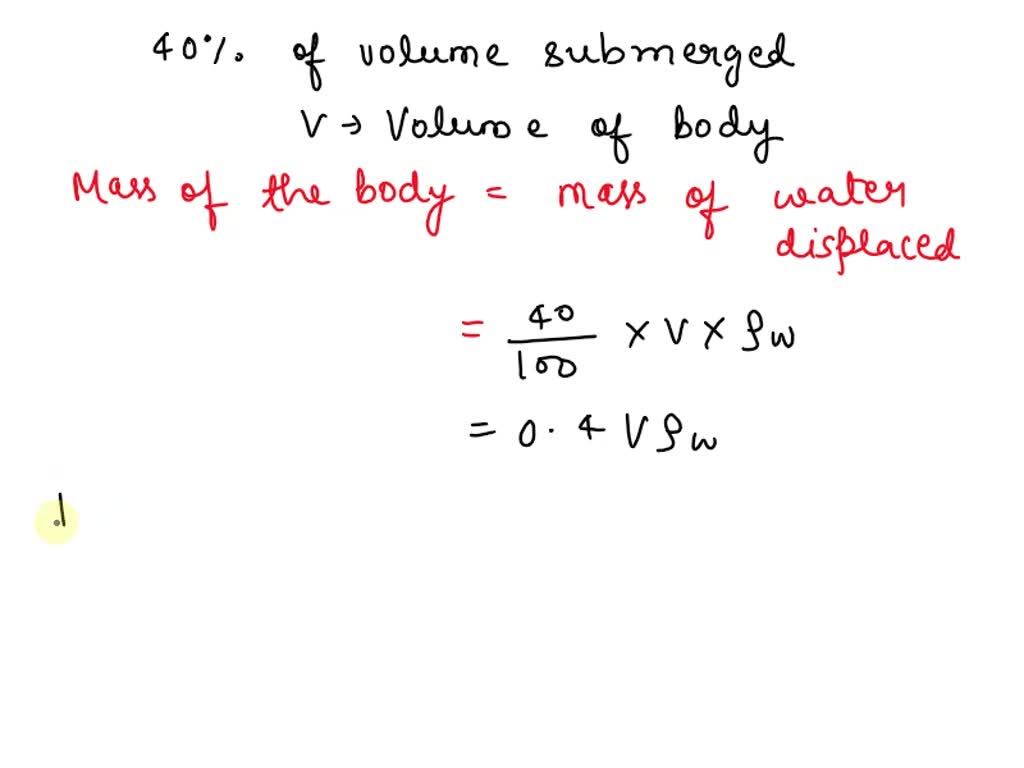 40% of volume submerged
V → Volume of body
Mass of the body = mass of water
displaced
= 40/100 × V × ρw
= 0.4 Vρw